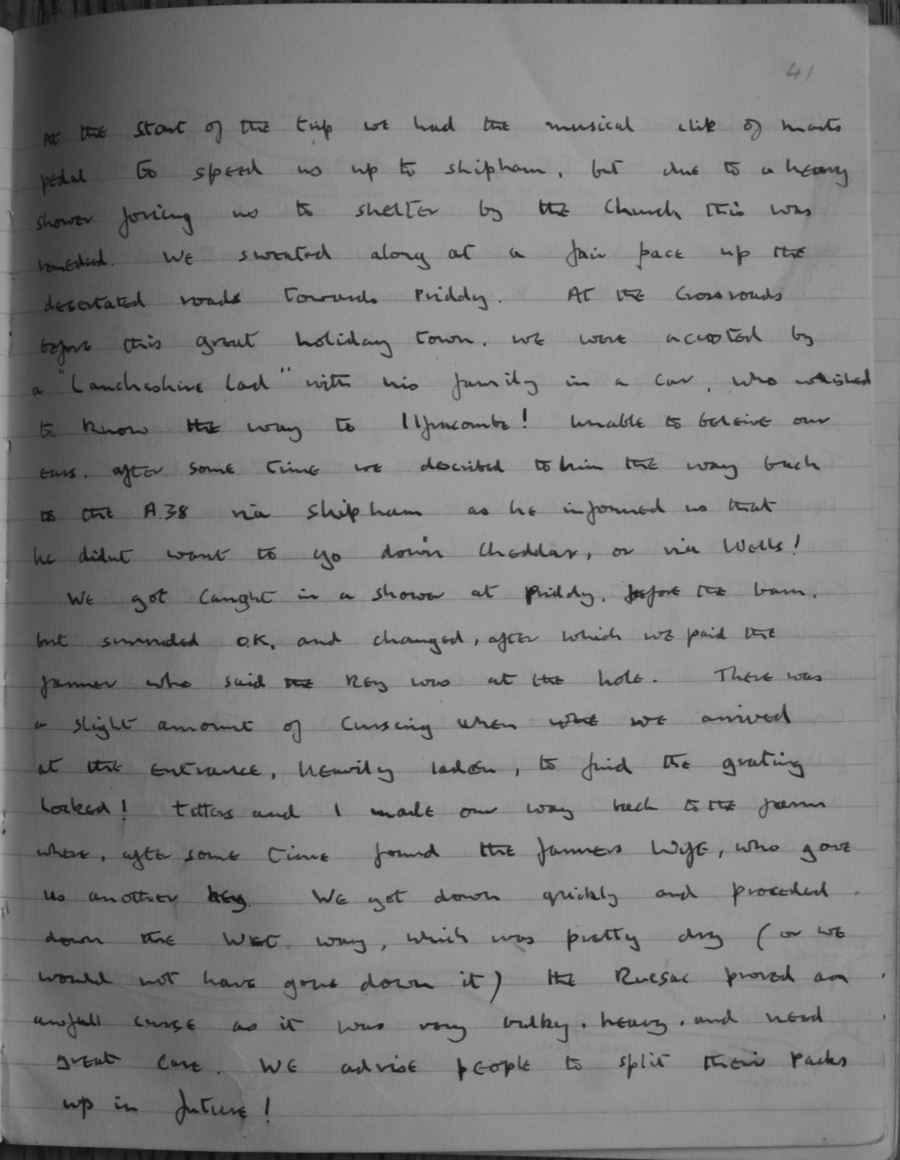 41
At the start of the trip we had the musical clik of marts
pedal to speed us up to shipham, but due to a heavy
shower forcing us to shelter by the Church this was
remedied. We sweated along at a fair pace up the
desertated roads towards Priddy. At the Crossroads
before this great holiday town, we were accosted by
a "Lancheshire Lad" with his family in a car, who wished
to know the way to Ilfracombe! Unable to beleive our
ears, after some time we described to him the way back
to the A.38 via Shipham as he informed us that
he didnt want to go down Cheddar, or via Wells!
We got caught in a shower at Priddy, before the barn,
but survided O.K, and changed, after which we paid the
farmer who said the Key was at the hole. There was
a slight amount of Cursing when we arrived
at the entrance, heavily laden, to find the grating
locked! Titters and I made our way back to the farm
where, after some time found the farmers wife, who gave
us another key. We got down quickly and proceded
down the Wet way, which was pretty dry (or we
would not have gone down it) the Rucsac proved an
awfull curse as it was very bulky, heavy, and need
great care. We advise people to split their packs
up in future!